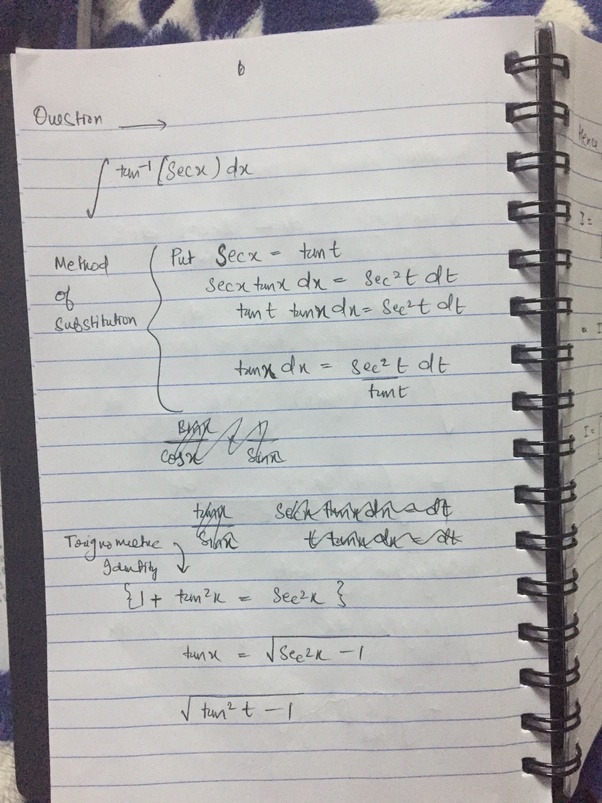 6
Question →
∫ tan⁻¹ (Secx) dx
Method of Substitution
Put Secx = tant
secx tanx dx = sec²t dt
tant tanx dx = sec²t dt
tanx dx = sec²t dt / tant
tanx / Sinx secx tanx dx = dt
t tanx dx = dt
Trignometric Identity
{1 + tan²x = Sec²x}
tanx = √Sec²x − 1
√tan²t − 1
Hence
I =
= I
I =